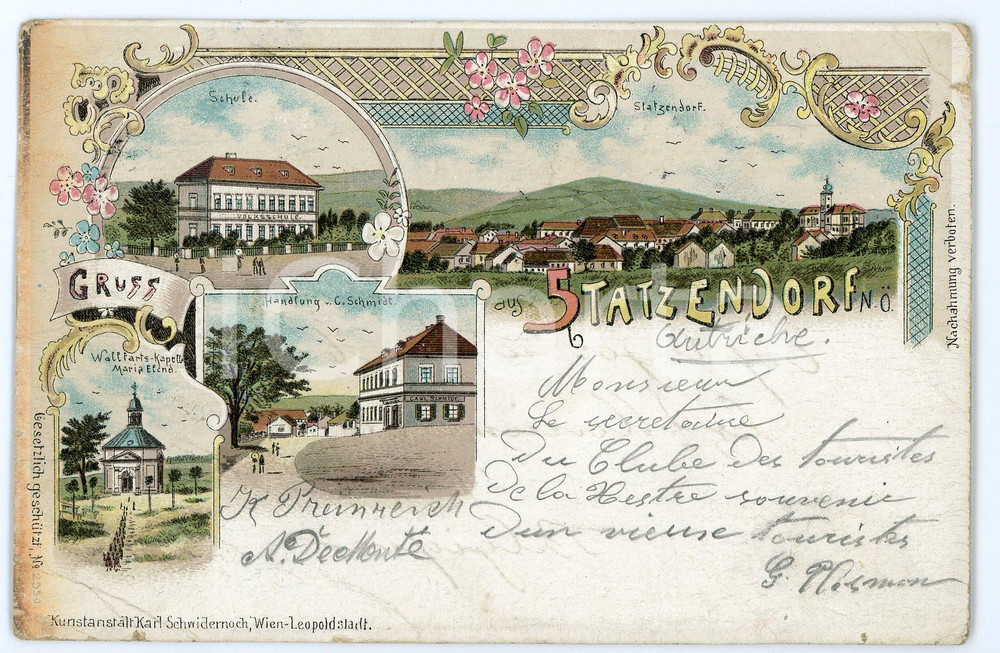 Schule.
Statzendorf.
VOLKSSCHULE.
GRUSS
aus STATZENDORF N.Ö.
Handlung v. C. Schmidt.
CARL SCHMIDT.
Wallfarts-Kapelle
Maria Elend.
Nachahmung verboten.
Gesetzlich geschützt, No 2550
Autriche.
Monsieur
Le secretaire
Du Clube des touristes
De la Hestre souvenir
D'un vieuse touriste
K Preinreich
A. DeMonté
G.
Kunstanstalt Karl Schwidernoch, Wien-Leopoldstadt.